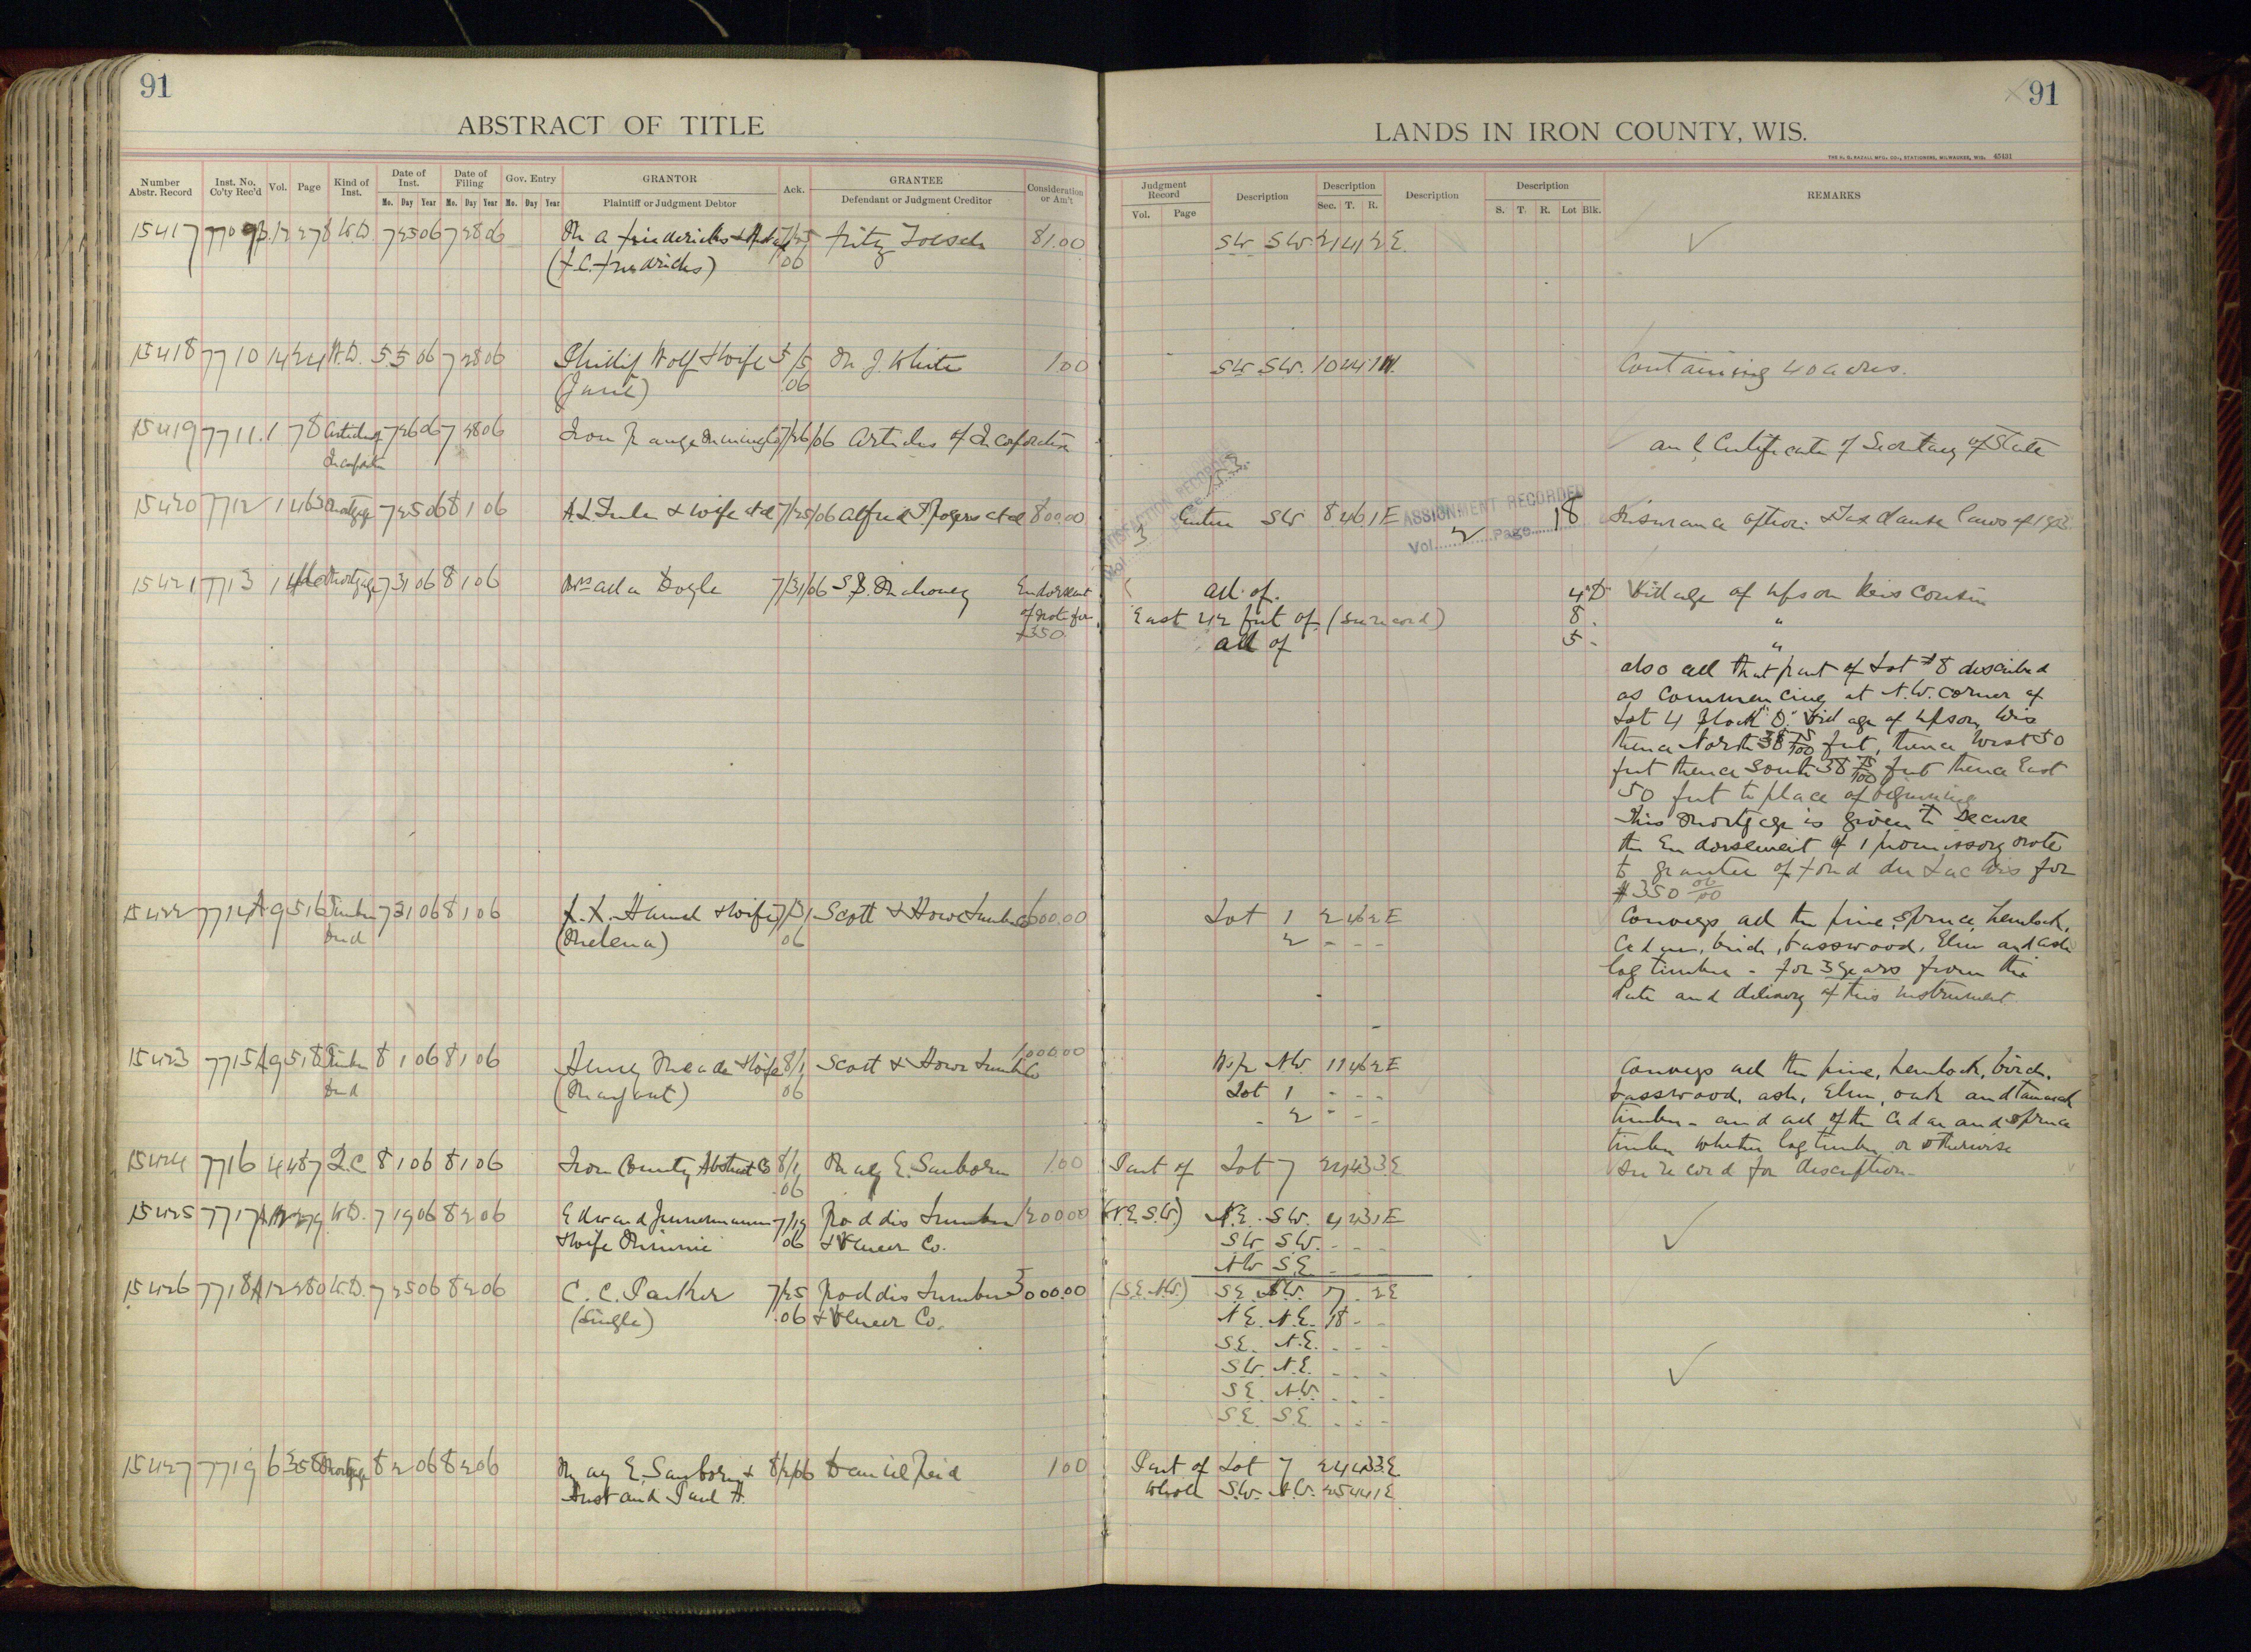 91
ABSTRACT OF TITLE
Number Abstr. Record Inst. No. Co'ty Rec'd Vol. Page Kind of Inst. Date of Inst. Mo. Day Year Date of Filing Mo. Day Year Gov. Entry Mo. Day Year GRANTOR Plaintiff or Judgment Debtor Ack. GRANTEE Defendant or Judgment Creditor Consideration or Am't
91
LANDS IN IRON COUNTY, WIS.
THE H. G. RAZALL MFG. CO., STATIONERS, MILWAUKEE, WIS. 45431
Judgment Record Vol. Page Description Description Sec. T. R. Description Description S. T. R. Lot Blk. REMARKS
15417 7709 12 278 W.D. 7 25 06 7 28 06 7/25 Fritz 81.00 SW SW. 21 41 2 E.
06
15418 7710 14 24 W.D. 5 5 06 7 28 06 Phillip Wolf & wife 5/5 M. J. White 1.00 SW SW. 10 44 1 W. Containing 40 acres.
(Jane) 06
15419 7711. 1 78 Articles of 7 26 06 7 28 06 Iron Range Mining Co 7/26/06 Articles of Incorporation and Certificate of Secretary of State
Incorporation
15420 7712 1 463 Mortgage 7 25 06 8 1 06 & wife et al 7/25/06 Alfred T. Rogers et al 800.00 Entire SW 8 46 1 E Insurance option: Tax clause laws of
SATISFACTION RECORDED Vol. 3 Page 153
ASSIGNMENT RECORDED
Vol. 2 Page 18
15421 7713 1 Mortgage 7 31 06 8 1 06 Mrs Ada Doyle 7/31/06 S. B. Mahoney Endorsement All of. 4 D Village of Upson Wisconsin
of note for East 42 feet of (see record) 8 - "
$350. All of 5 - "
also all that part of Lot #8 described
as commencing at N.W. corner of
Lot 4 Block "D." Village of Upson, Wis
thence North 38 75/100 feet, thence West 50
feet thence South 38 75/100 feet thence East
50 feet to place of beginning
This Mortgage is given to secure
the Endorsement of 1 promissory note
to grantee of Fond du Lac Wis for
$350 00/00
15422 7714 A9 516 Timber 7 31 06 8 1 06 & wife 7/31 Scott & Howe Lumber Co 600.00 Lot 1 2 46 2 E Conveys all the pine, spruce, hemlock,
Deed (Melena) 06 2 - - - Cedar, birch, basswood, Elm and ash
log timber - for 3 years from the
date and delivery of this instrument.
15423 7715 A9 518 Timber 8 1 06 8 1 06 Henry Meade & Wife 8/1 Scott & Howe Lumber Co 1,000.00 N 1/2 NW 11 46 2 E Conveys all the pine, hemlock, birch,
Deed (Margaret) 06 Lot 1 - - - basswood, ash, Elm, oak and tamarack
- 2 - - - timber - and all of the Cedar and Spruce
timber whether log timber or otherwise
15424 7716 4 487 Q.C 8 1 06 8 1 06 Iron County Abstract Co 8/1 May E. Sanborn 1.00 Part of Lot 7 24 43 3 E. See record for description -
06
15425 7717 W.D. 7 19 06 8 2 06 Edward 7/19 Roddis Lumber 1200.00 (N.E. S.W.) N.E. SW. 4 43 1 E
& wife Minnie 06 & Veneer Co. SW SW. - - -
NW S.E. - - -
15426 7718 A12 280 W.D. 7 25 06 8 2 06 C. C. Parker 7/25 Roddis Lumber 3000.00 (S.E. N.W.) S.E. N.W. 7 - 2 E
(Single) .06 & Veneer Co. N.E. N.E. 18 - -
S.E. N.E. - - -
SW. N.E. - - -
SE N.W. - - -
S.E. S.E. - - -
15427 7719 6 358 Mortgage 8 2 06 8 2 06 May E. Sanborn & 8/2/06 Daniel Reid 1.00 Part of Lot 7 24 43 3 E.
Husband Paul H. Whole S.W. N.W. 25 44 1 E